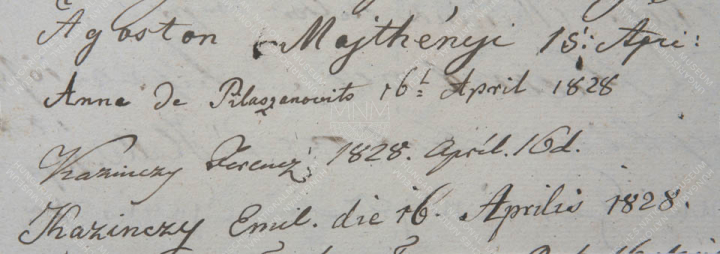 Ágoston Majthényi 15: Apr:
Anne de Pilaszanovits 16t April 1828
MNM
Kazinczy Ferencz, 1828. April. 16d.
Kazinczy Emil. die 16. Aprilis 1828.